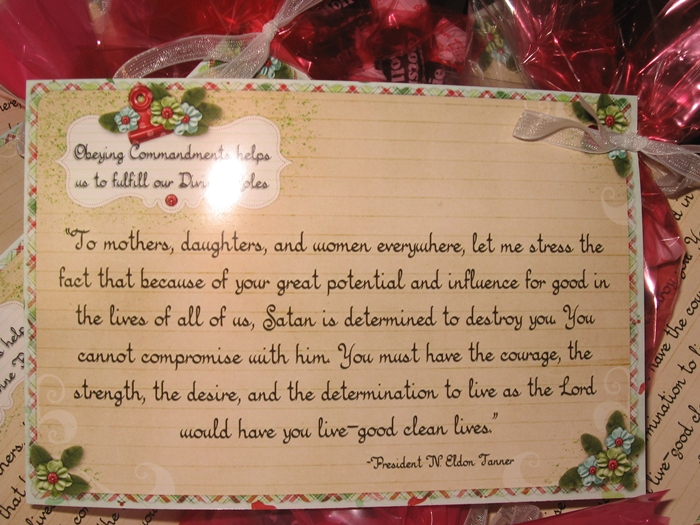 Obeying Commandments helps
us to fulfill our Divine Roles
"To mothers, daughters, and women everywhere, let me stress the
fact that because of your great potential and influence for good in
the lives of all of us, Satan is determined to destroy you. You
cannot compromise with him. You must have the courage, the
strength, the desire, and the determination to live as the Lord
would have you live-good clean lives."
-President N Eldon Tanner